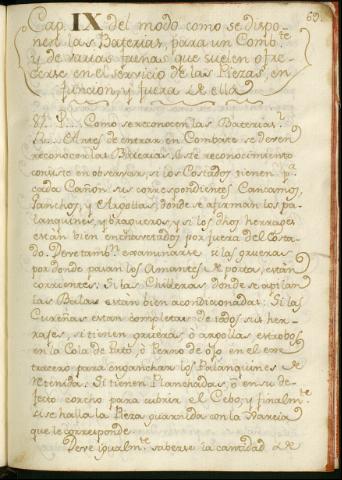 69.
Cap. IX del modo como se dispo-
nen las Baterias, para un Comb.te
y de varias faenas que suelen ofre-
cerse en el servicio de las Piezas, en
funcion, y fuera de ella
81. P... Como se reconocen las Baterias?
R... Antes de entrar en Combate se deven
reconocer las Baterias, este reconocimiento
consiste en observar, si los Costados tienen p.a
cada Cañon sus correspondientes Cancamos,
Ganchos, y Argollas, donde se afirman los pa-
lanquines, y Bragueros, y si los dhos herrages
están bien enchavetados por fuera del Costa-
do. Deve tamb.n examinarse, si las grueras
por donde pasan los Amantes de portas, están
corrientes: Si las Chilleras, donde se apilan
las Balas están bien acondicionadas: Si las
Cureñas estan completas de todos sus her-
rages, si tienen grueras, ò argollas, estrobos
en la Cola de Pato, ò Perno de ojo en el con-
tracero para enganchar los Palanquines de
Retenida: Si tienen Planchadas, ò en su de-
fecto corcho para cubrir el Cebo, y finalm.te
si se halla la Pieza guarnida con la Xarcia
que le corresponde
Deve igualm.te saberse la cantidad de